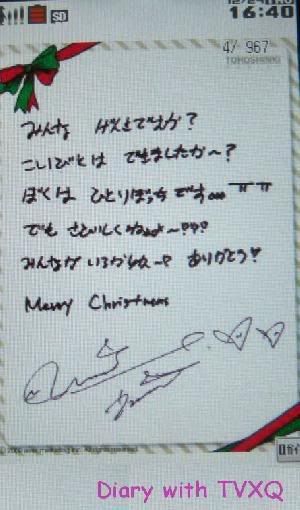 16:40
SD
4/ 967
TOHOSHINKI
みんな げんきですか?
こいびとは できましたか～?
ぼくは ひとりぼっちです… ㅠㅠ
でも さびしくないよ～???
みんなが いるからね～? ありがとう!
Merry Christmas
Diary with TVXQ